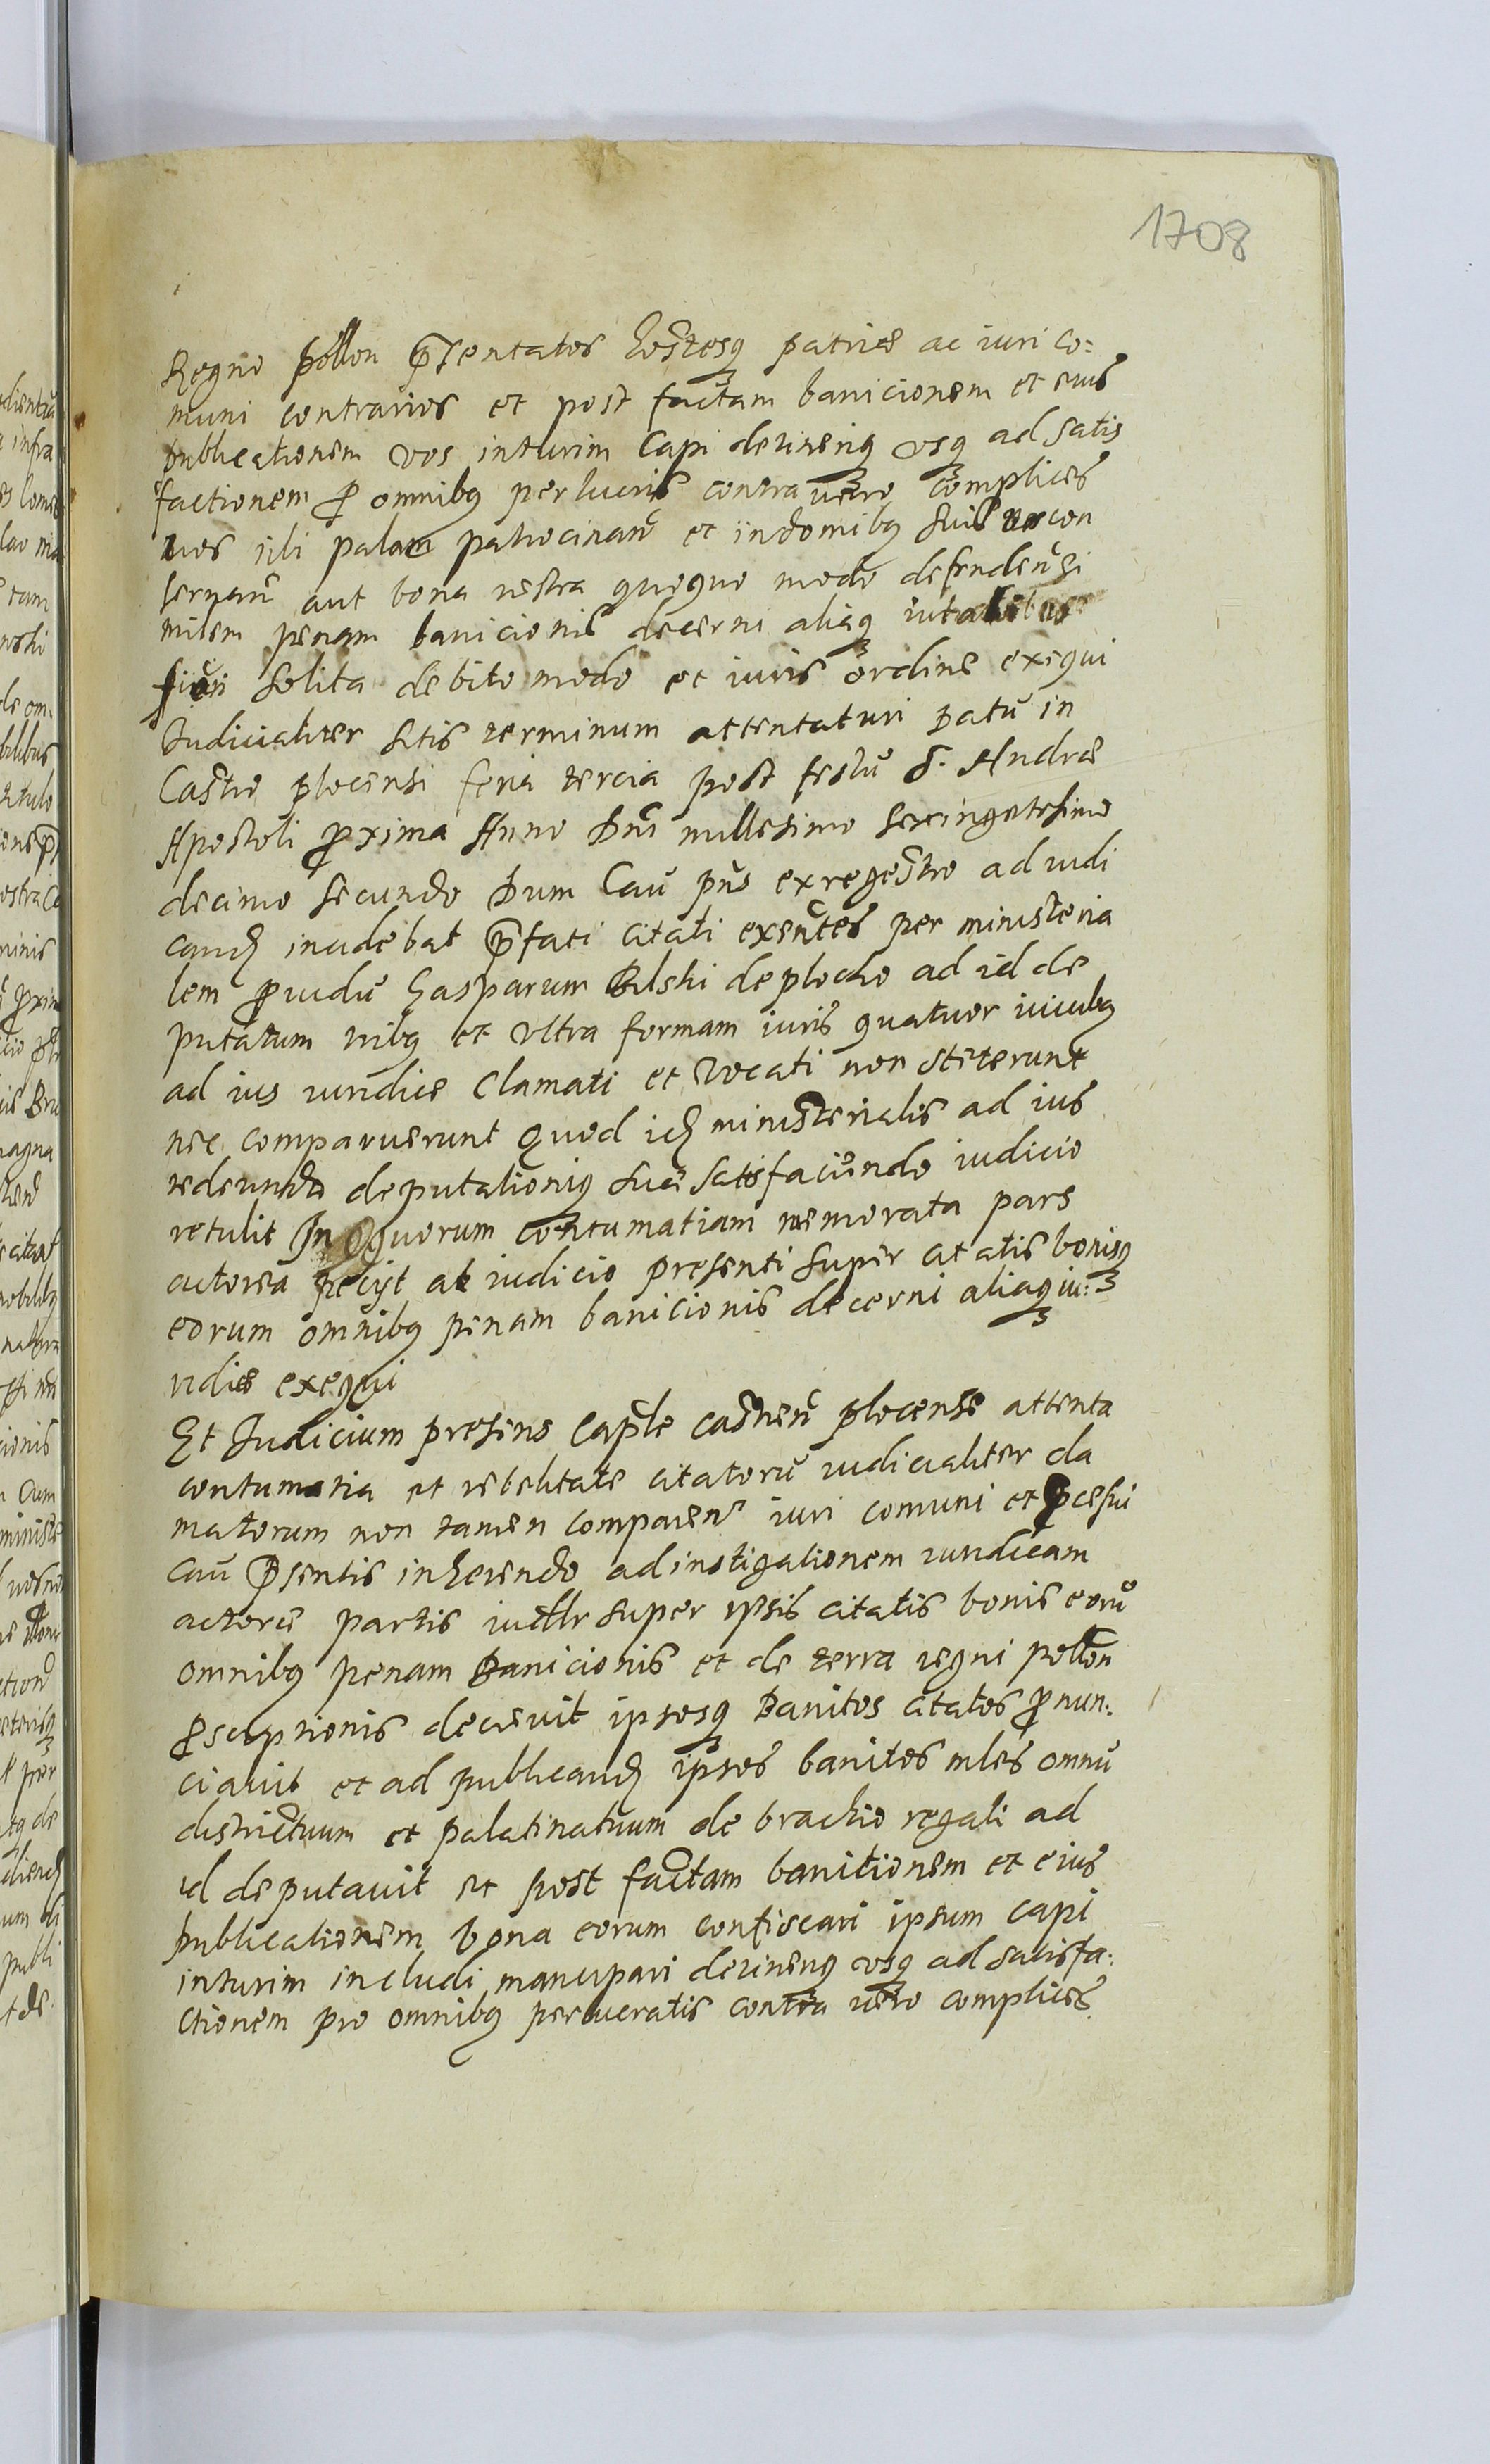 1708
Regno pollon p̄sentatos hostesq patriæ ac iuri co:
muni contrarios et post factam banicionem et eius
publicationem vos inturim Capi detineriq usq ad satis
factionem p omnibq perlucris contra vero complices
vos sibi palam patrocinan̄ et in domibq suis con
seruan̄ aut bona vestra quoquo modo defenden̄ si
milem penam banicionis decerni aliaq
fieri solita debito modo et iuris ordine exequi
Iudicialiter Sitis terminum attentaturi patū in
Castro plocensi feria tercia post festū S. Andræ
Apostoli pxima Anno Dni millesimo sexingetesimo
decimo secundo Dum Cau pn̄s ex regestro ad iudi
cand incidebat p̄fati citati exen̄tes per ministeria
lem puidū Gasparum Bilski de plocko ad id de
putatum tribq et vltra formam iuris quatuor vicibq
ad ius iuridice Clamati et Vocati non steterunt
nec comparuerunt Quod id ministerialis ad ius
redeundo deputationiq suæ satisfaciendo iudicio
retulit In Quorum contumatiam memorata pars
actorea petijt ab iudicio presenti super citatis bonisq
eorum omnibq penam banicionis decerni aliaq iu:
ridice exequi
Et Iudicium presens Caple castren̄ plocense attenta
contumatia et rebelitate citatorū iudicialiter cla
matorum non tamen comparen̄ iuri comuni et pcesui
Cau p̄sentis inherendo ad instigationem iuridicam
actoreæ partis iudllr super ipsis citatis bonis eorū
omnibq penam Banicionis et de terra regni pollon̄
pscriptionis decrevit ipsosq Banitos citatos pnun:
ciavit et ad publicand ipsos banitos mles omnū
districtuum et palatinatuum de brachio regali ad
id deputavit et post factam banitionem et eius
publicationem bona eorum confiscari ipsum capi
inturim includi mancipari detineriq usq ad satisfa:
ctionem pro omnibq perlucratis contra vero complices